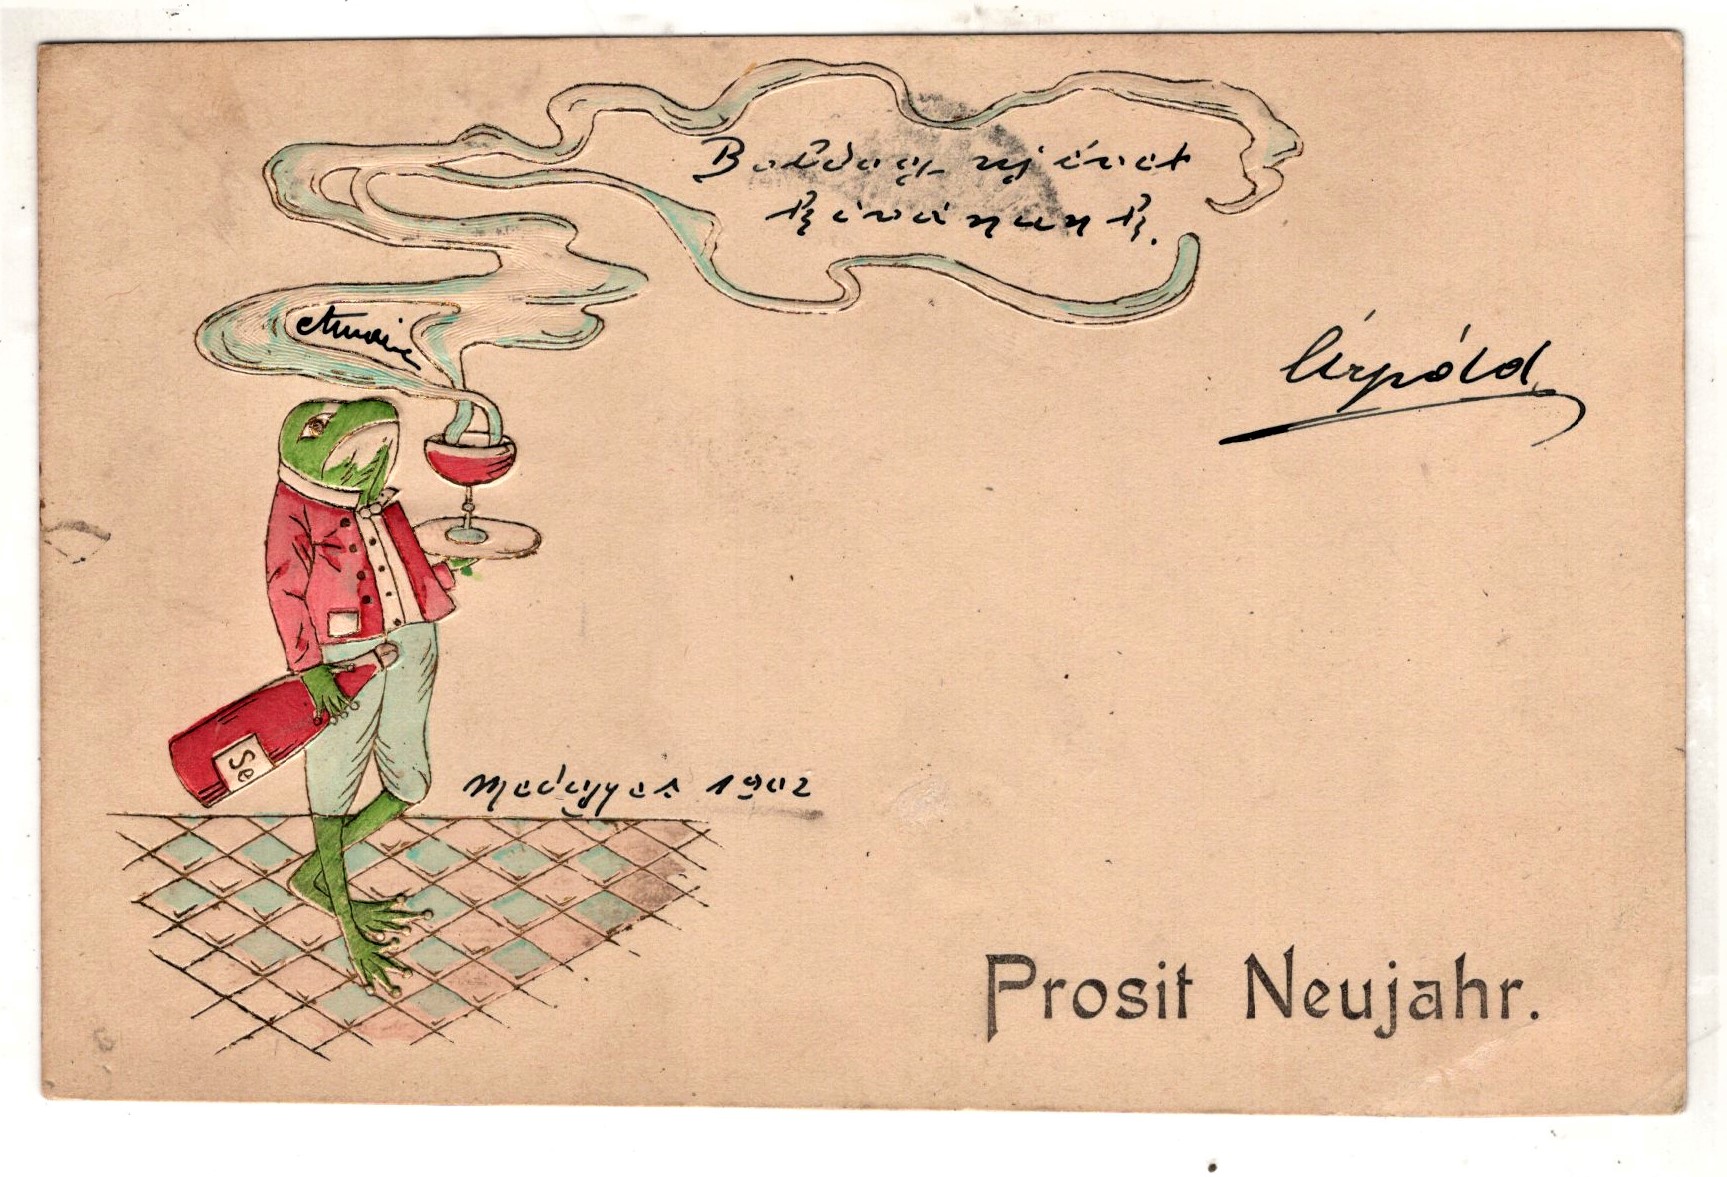 Boldog uj évet
kivánunk.
Árpád
Se
Medgyes 1902
Prosit Neujahr.